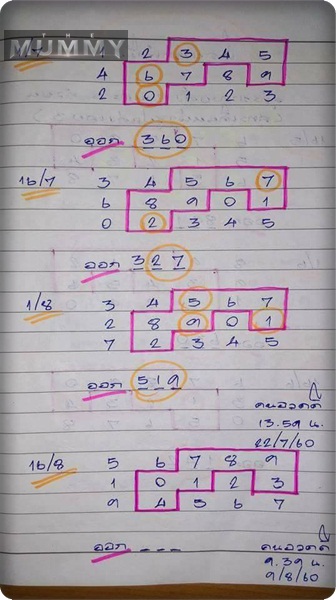 MUMMY
1 2 3 4 5
4 6 7 8 9
2 0 1 2 3
ออก 360
16/7 3 4 5 6 7
6 8 9 0 1
0 2 3 4 5
ออก 327
1/8 3 4 5 6 7
2 8 9 0 1
7 2 3 4 5
ออก 519
คนอวดดี
13.59 น.
22/7/60
16/8 5 6 7 8 9
1 0 1 2 3
9 4 5 6 7
ออก _ _ _
คนอวดดี
9.39 น.
9/8/60